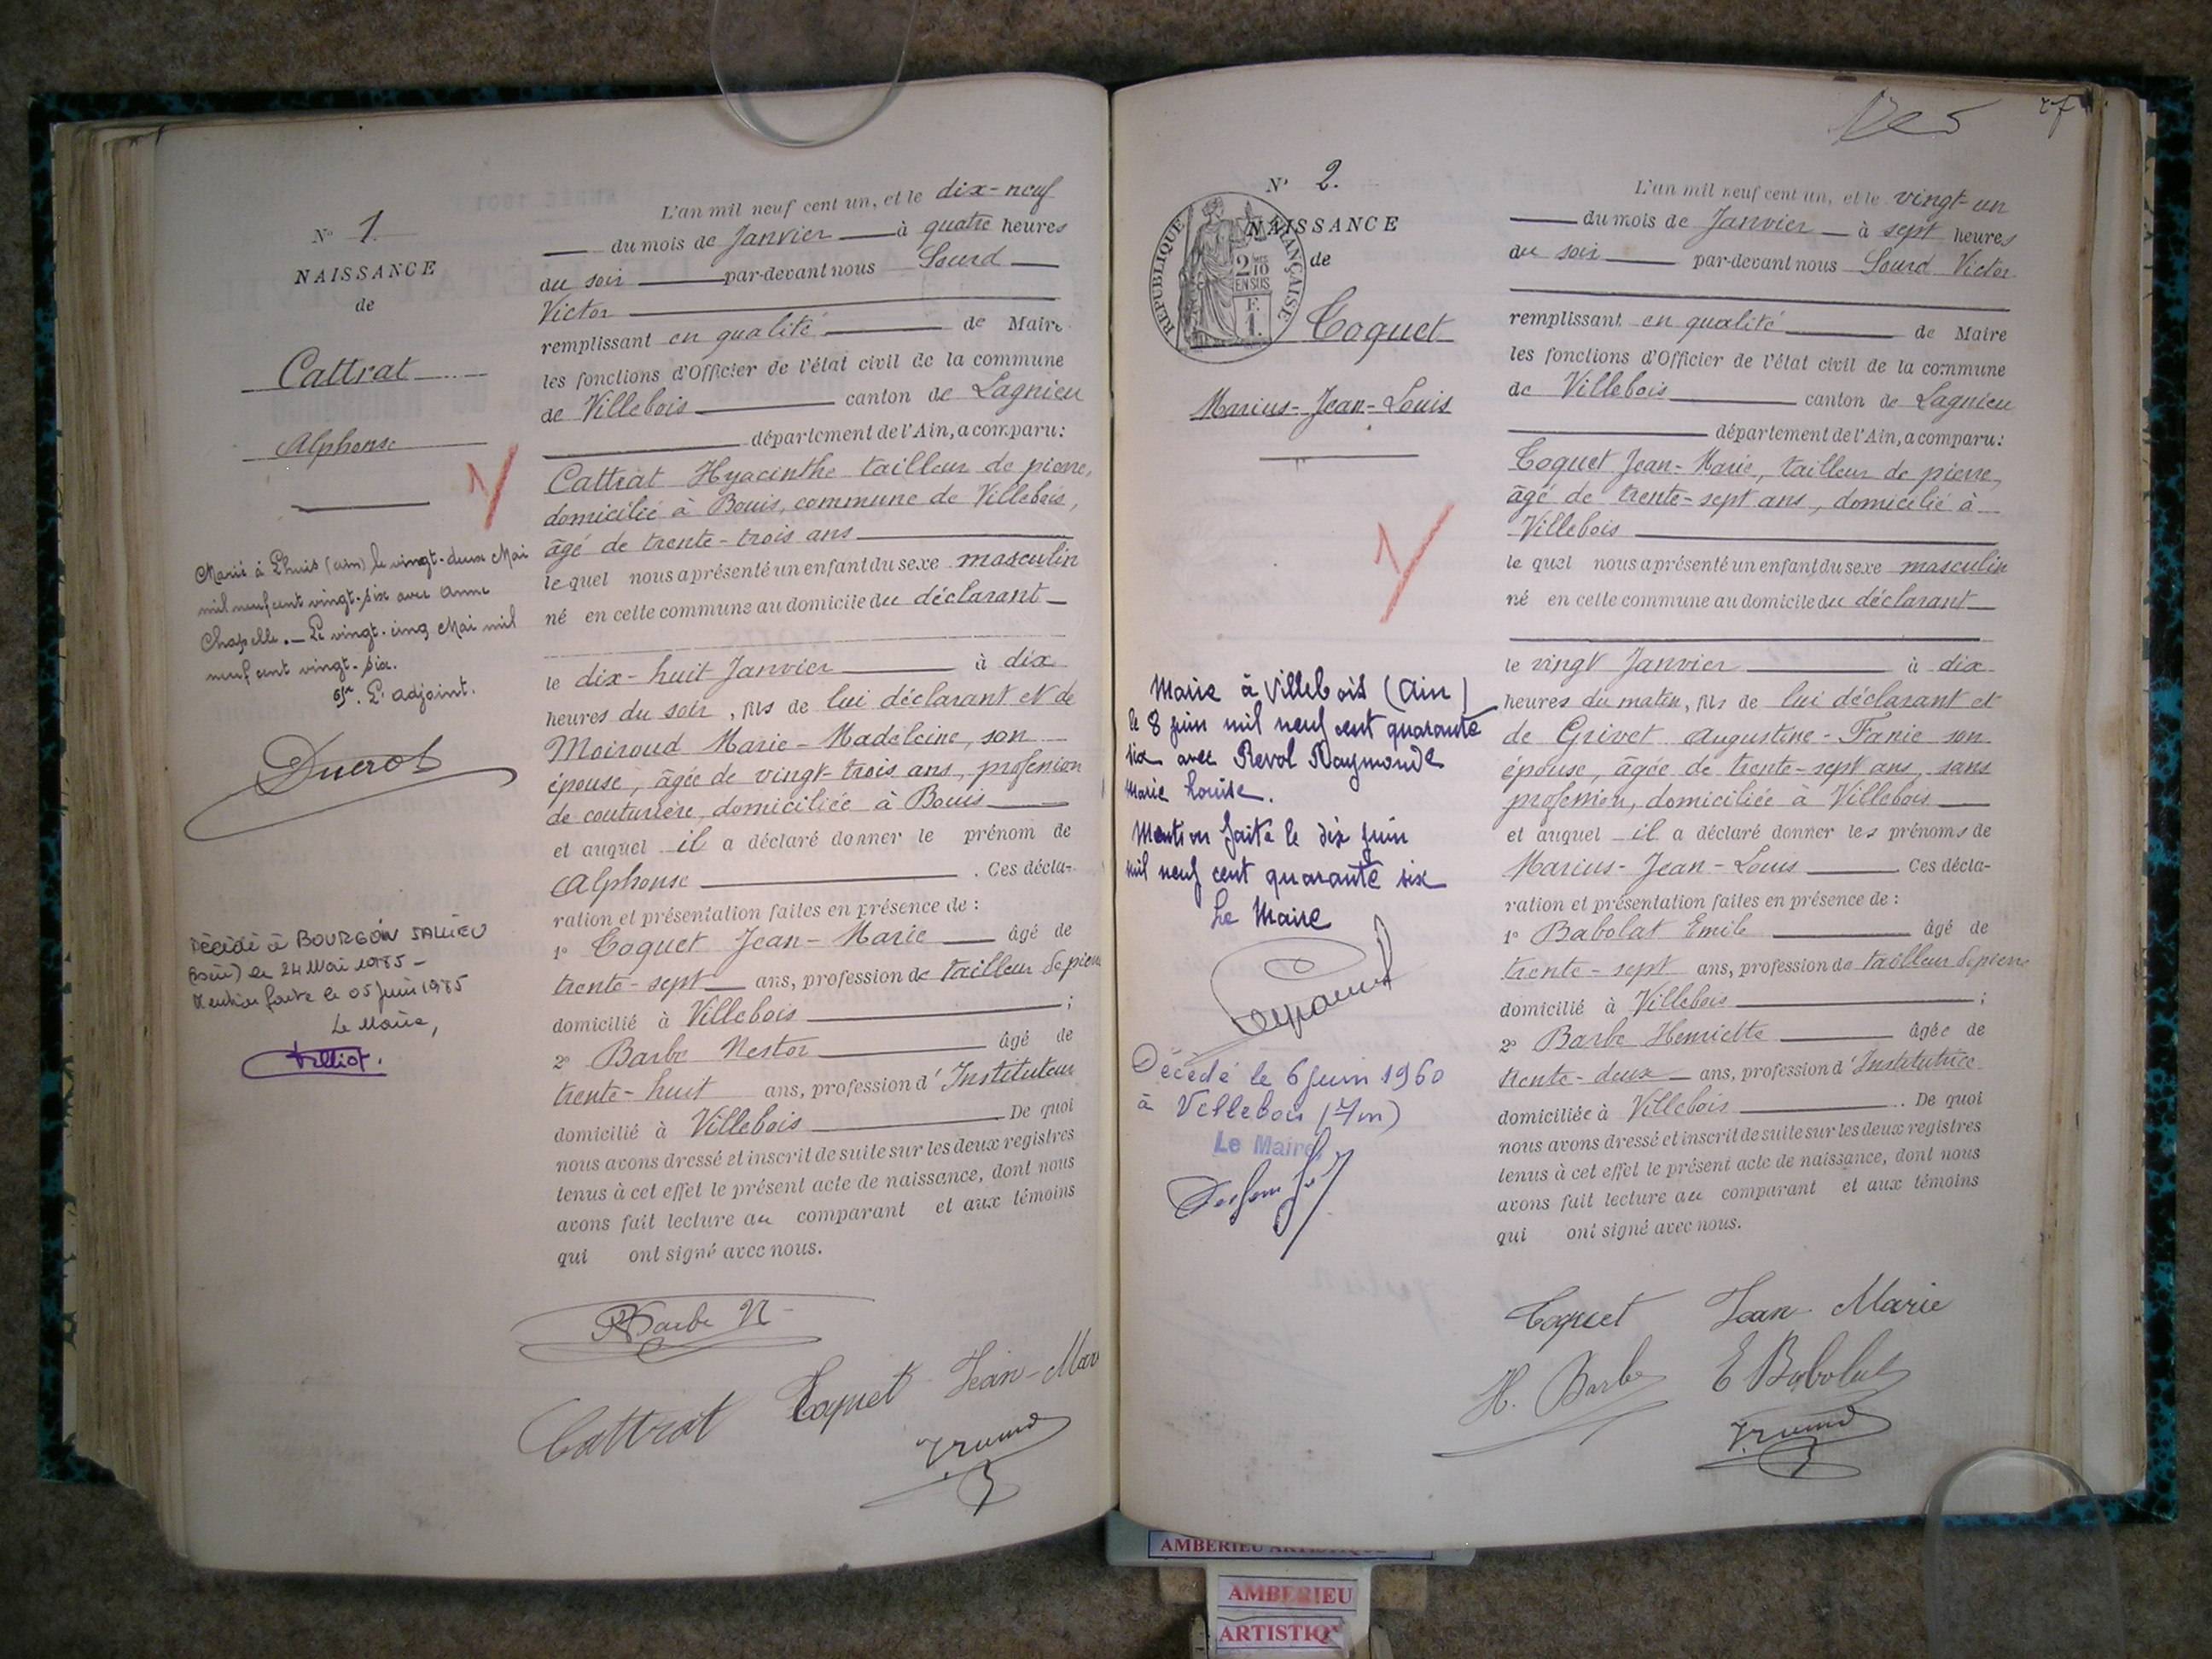 N° 1.
NAISSANCE
de
Cattrat
Alphonse
1/
Marié à Lhuis (ain) le vingt-deux Mai
mil neuf cent vingt-six avec Anne
Chapelle. — Le vingt-cinq Mai mil
neuf cent vingt-six.
L'adjoint.
Ducrot
Décédé à BOURGOIN JALLIEU
(Isère) le 24 Mai 1985 —
Mention faite le 05 Juin 1985
Le Maire,
L'an mil neuf cent un, et le dix-neuf
du mois de Janvier à quatre heures
du soir par-devant nous Sourd
Victor
remplissant en qualité de Maire
les fonctions d'Officier de l'état civil de la commune
de Villebois canton de Lagnieu
département de l'Ain, a comparu :
Cattrat Hyacinthe tailleur de pierre,
domicilié à Bouis, commune de Villebois,
âgé de trente-trois ans
le quel nous a présenté un enfant du sexe masculin
né en cette commune au domicile du déclarant
le dix-huit Janvier à dix
heures du soir, fils de lui déclarant et de
Moiroud Marie-Madeleine, son
épouse, âgée de vingt-trois ans, profession
de couturière, domiciliée à Bouis
et auquel il a déclaré donner le prénom de
Alphonse . Ces décla-
ration et présentation faites en présence de :
1° Coquet Jean-Marie âgé de
trente-sept ans, profession de tailleur de pierre
domicilié à Villebois ;
2° Barbe Nestor âgé de
trente-huit ans, profession d'Instituteur
domicilié à Villebois De quoi
nous avons dressé et inscrit de suite sur les deux registres
tenus à cet effet le présent acte de naissance, dont nous
avons fait lecture au comparant et aux témoins
qui ont signé avec nous.
Barbe N
Cattrat Coquet Jean-Mar
27
N° 2.
NAISSANCE
de
RÉPUBLIQUE FRANÇAISE
2/10
EN SUS
F.
1.
Coquet
Marius-Jean-Louis
1/
Marié à Villebois (Ain)
le 8 juin mil neuf cent quarante
six avec Revol Raymonde
Marie Louise.
Mention faite le dix juin
mil neuf cent quarante six
Le Maire
Décédé le 6 juin 1960
à Villebois (Ain)
Le Maire
L'an mil neuf cent un, et le vingt-un
du mois de Janvier à sept heures
du soir par-devant nous Sourd Victor
remplissant en qualité de Maire
les fonctions d'Officier de l'état civil de la commune
de Villebois canton de Lagnieu
département de l'Ain, a comparu :
Coquet Jean-Marie, tailleur de pierre,
âgé de trente-sept ans, domicilié à
Villebois
le quel nous a présenté un enfant du sexe masculin
né en cette commune au domicile du déclarant
le vingt Janvier à dix
heures du matin, fils de lui déclarant et
de Grivet Augustine-Fanie son
épouse, âgée de trente-sept ans, sans
profession, domiciliée à Villebois
et auquel il a déclaré donner les prénoms de
Marius-Jean-Louis . Ces décla-
ration et présentation faites en présence de :
1° Babolat Emile âgé de
trente-sept ans, profession de tailleur de pierre
domicilié à Villebois ;
2° Barbe Henriette âgée de
trente-deux ans, profession d'Institutrice
domiciliée à Villebois . De quoi
nous avons dressé et inscrit de suite sur les deux registres
tenus à cet effet le présent acte de naissance, dont nous
avons fait lecture au comparant et aux témoins
qui ont signé avec nous.
Coquet Jean Marie
H. Barbe E Babolat
AMBERIEU ARTISTIQUE
AMBERIEU
ARTISTIQ